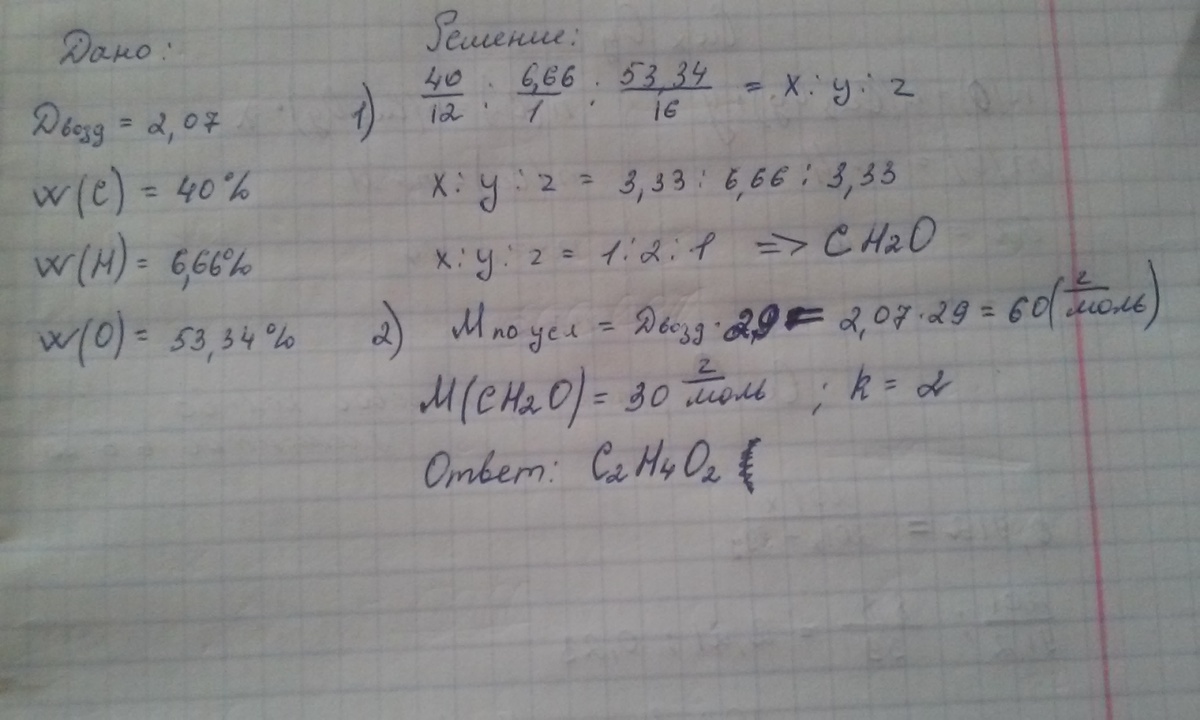 Дано:
Dвозд = 2,07
w(C) = 40%
w(H) = 6,66%
w(O) = 53,34%
Решение:
1) 40/12 : 6,66/1 : 53,34/16 = x : y : z
x : y : z = 3,33 : 6,66 : 3,33
x : y : z = 1 : 2 : 1 => CH2O
2) M по усл = Dвозд · 29 = 2,07 · 29 = 60 (г/моль)
M(CH2O) = 30 г/моль ; k = 2
Ответ: C2H4O2